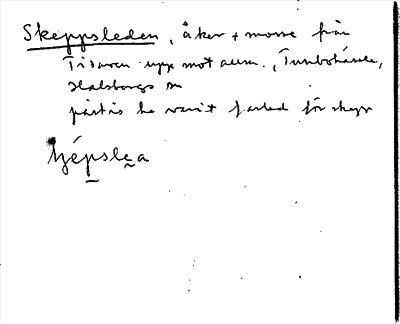 Skeppsleden, åker + mosse från
Tisaren upp mot aum., Tunbohässle,
Halsbergs sn
påstås ha varit farled för skepp
ʃépslea